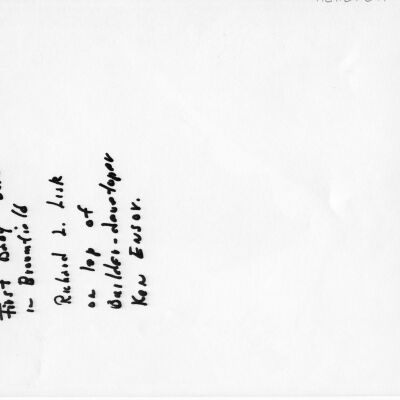 First Baby
in Broomfield
Richard L. Lisk
on lap of
Builder-developer
Ken Ensor.